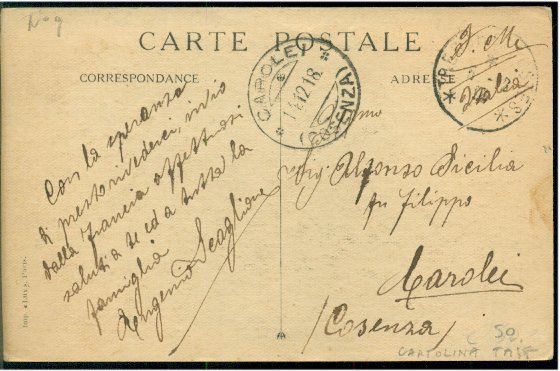 CARTE POSTALE
CORRESPONDANCE
ADRE
Con la speranza
di presto rivederci, invio
dalla Francia affettuosi
saluti a te ed a tutta la
famiglia
Eugenio Scaglione
CAROLEI
14.12.18
(COSENZA)
Sig Alfonso Sicilia
fu Filippo
Carolei
(Cosenza)
50
CARTOLINA
Imp.
Paris.